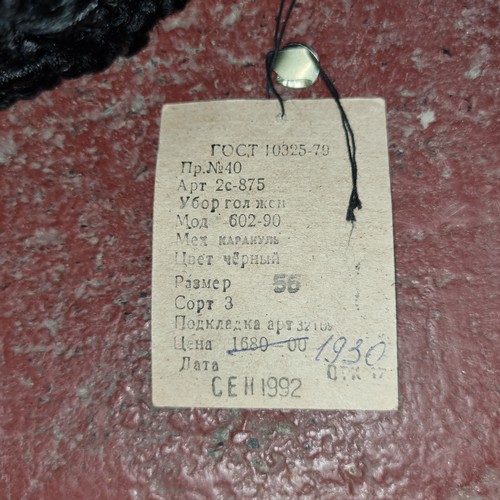 ГОСТ 10325-79
Пр.№40
Арт 2с-875
Убор гол жен
Мод 602-90
Мех КАРАКУЛЬ
Цвет чёрный
Размер 56
Сорт 3
Подкладка арт 32109
Цена 1680 00 1930
Дата ОТК 17
СЕН 1992